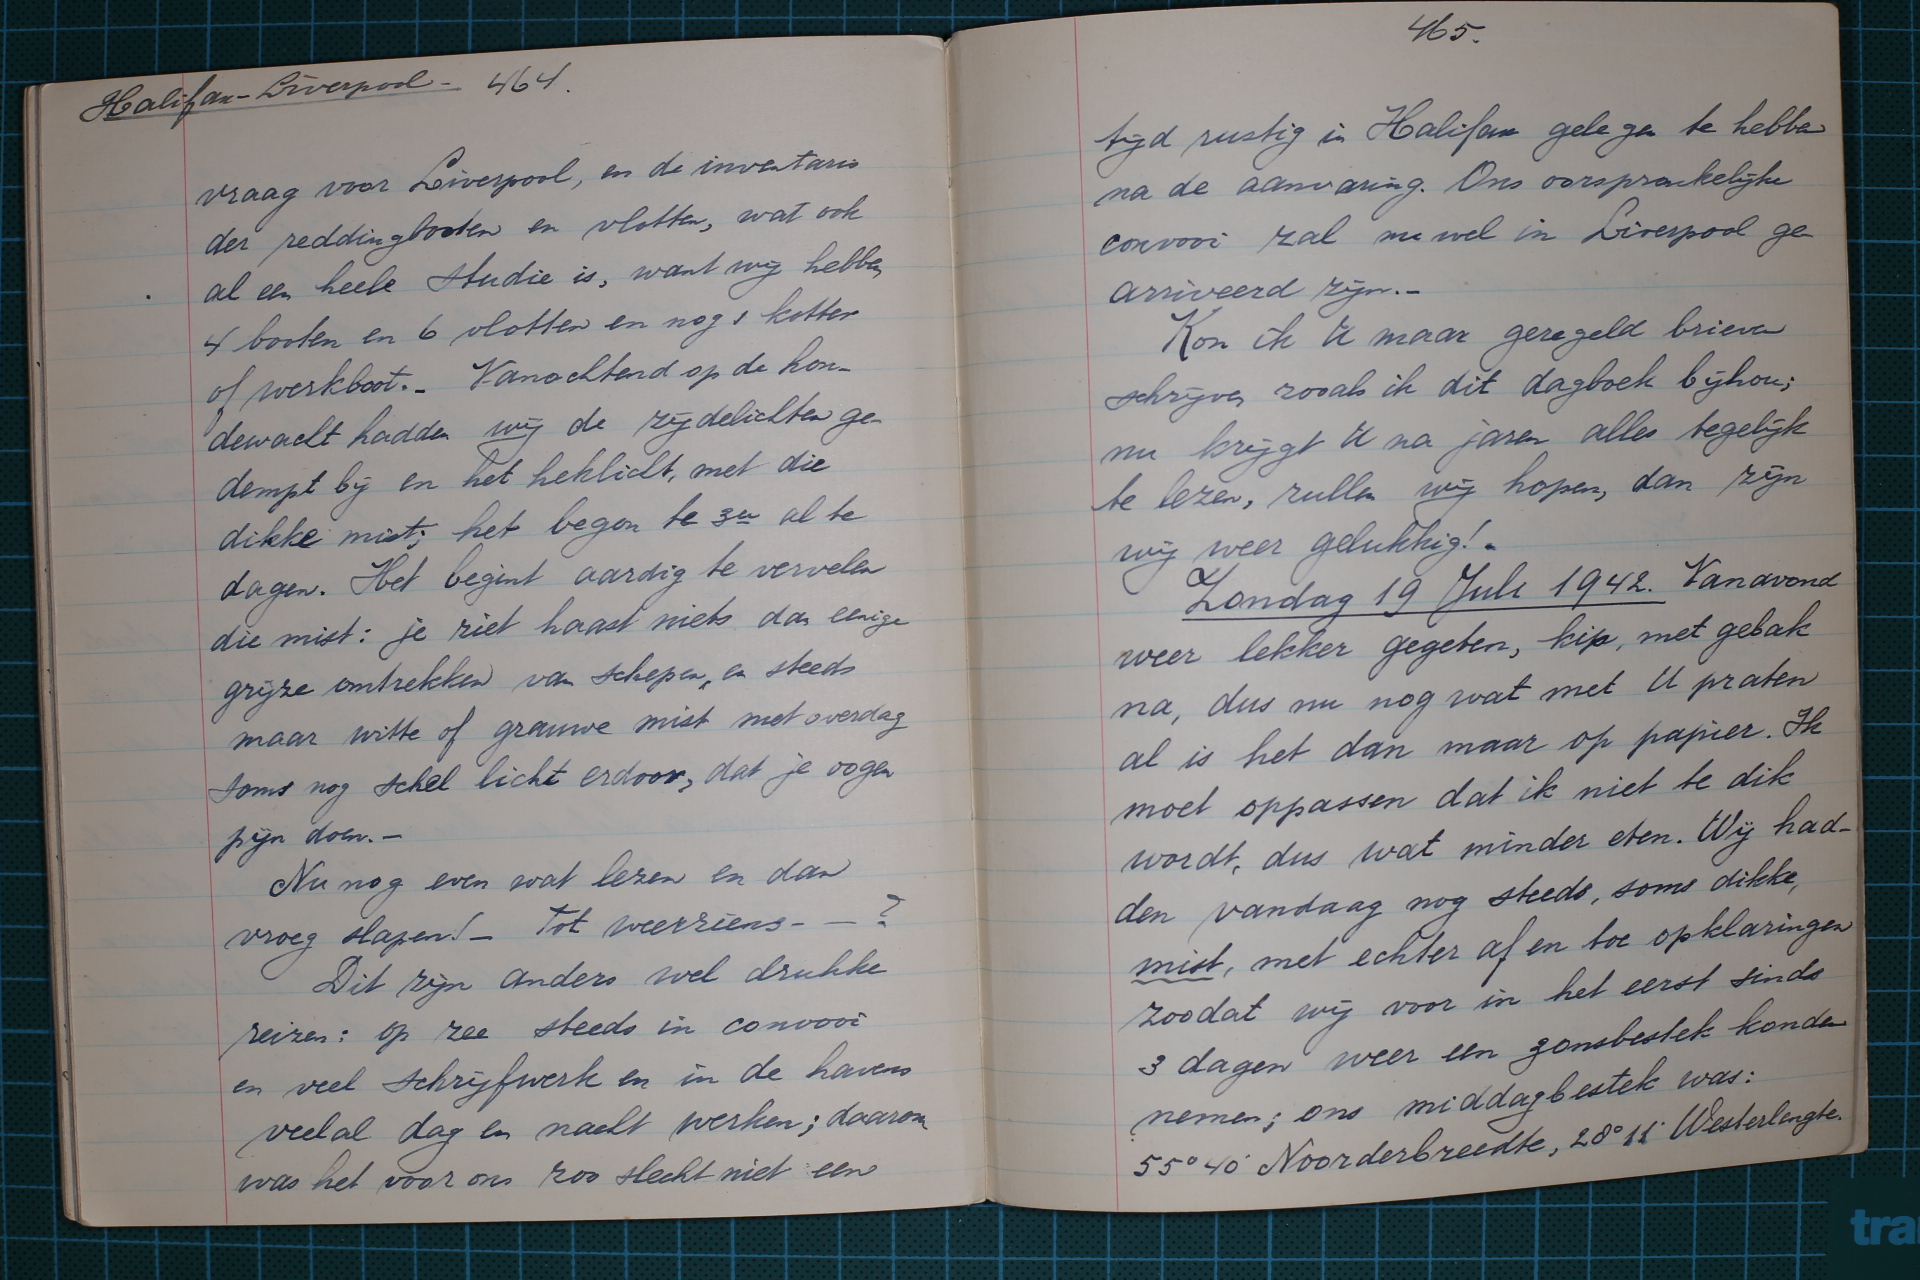 Halifax-Liverpool- 464.
vraag voor Liverpool, en de inventaris
der reddingbooten en vlotten, wat ook
al een heele studie is, want wij hebben
4 booten en 6 vlotten en nog 1 kotter
of werkboot.- Vanochtend op de hon-
dewacht hadden wij de zijdelichten ge-
dempt bij en het heklicht, met die
dikke mist; het begon te 3u al te
dagen. Het begint aardig te vervelen
die mist: je ziet haast niets dan eenige
grijze omtrekken van schepen, en steeds
maar witte of grauwe mist met overdag
soms nog schel licht erdoor, dat je oogen
pijn doen.-
Nu nog even wat lezen en dan
vroeg slapen!- Tot weerziens- - ?
Dit zijn anders wel drukke
reizen: op zee steeds in convooi
en veel schrijfwerk en in de havens
veelal dag en nacht werken; daarom
was het voor ons zoo slecht niet een
465.
tijd rustig in Halifax gelegen te hebben
na de aanvaring. Ons oorspronkelijke
convooi zal nu wel in Liverpool ge
arriveerd zijn.-
Kon ik U maar geregeld brieven
schrijven zooals ik dit dagboek bijhou;
nu krijgt U na jaren alles tegelijk
te lezen, zullen wij hopen, dan zijn
wij weer gelukkig!-
Zondag 19 Juli 1942. Vanavond
weer lekker gegeten, kip, met gebak
na, dus nu nog wat met U praten
al is het dan maar op papier. Ik
moet oppassen dat ik niet te dik
wordt, dus wat minder eten. Wij had-
den vandaag nog steeds, soms dikke,
mist, met echter af en toe opklaringen
zoodat wij voor in het eerst sinds
3 dagen weer een zonsbestek konden
nemen; ons middagbestek was:
55° 40' Noorderbreedte, 28° 11' Westerlengte.
tra